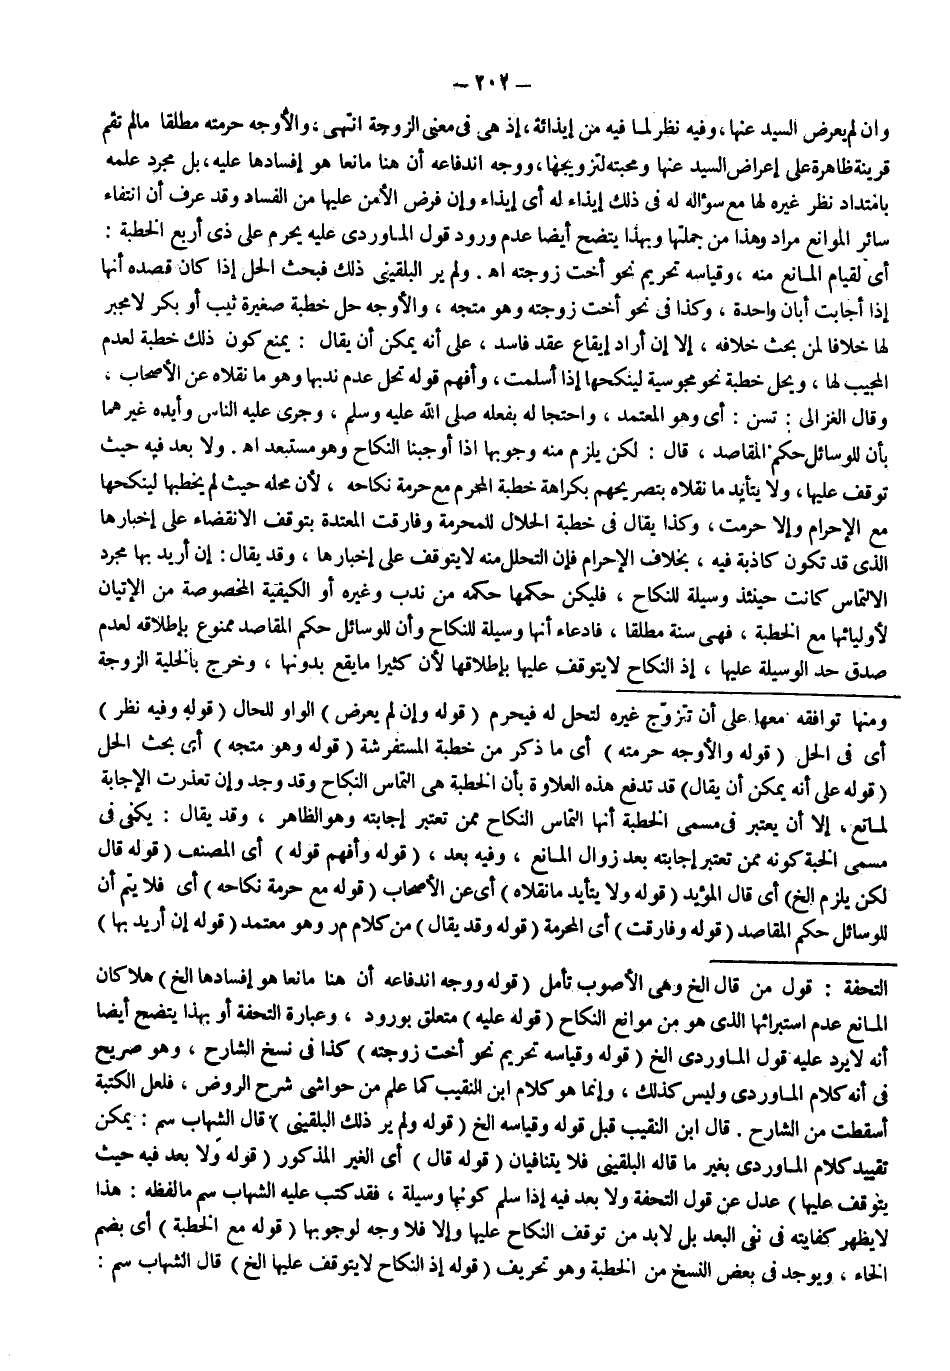 — ٢٠٢ —
وان لم يعرض السيد عنها، وفيه نظر لما فيه من إيذائة، إذ هى فى معنى الزوجة انتهى، والأوجه حرمته مطلقا مالم تقم
قرينة ظاهرة على إعراض السيد عنها ومحبته لتزويجها، ووجه اندفاعه أن هنا مانعا هو إفسادها عليه، بل مجرد علمه
بامتداد نظر غيره لها مع سؤاله له فى ذلك إيذاء له أى إيذاء وإن فرض الأمن عليها من الفساد وقد عرف أن انتفاء
سائر الموانع مراد وهذا من جملتها وبهذا يتضح أيضا عدم ورود قول الماوردى عليه يحرم على ذى أربع الخطبة :
أى لقيام المانع منه ، وقياسه تحريم نحو أخت زوجته اه . ولم ير البلقينى ذلك فبحث الحل إذا كان قصده أنها
إذا أجابت أبان واحدة ، وكذا فى نحو أخت زوجته وهو متجه ، والأوجه حل خطبة صغيرة ثيب أو بكر لامجبر
لها خلافا لمن بحث خلافه ، إلا إن أراد إيقاع عقد فاسد ، على أنه يمكن أن يقال : يمنع كون ذلك خطبة لعدم
المجيب لها ، ويحل خطبة نحو مجوسية لينكحها إذا أسلمت ، وأفهم قوله تحل عدم ندبها وهو ما نقلاه عن الأصحاب ،
وقال الغزالى : تسن : أى وهو المعتمد ، واحتجا له بفعله صلى الله عليه وسلم ، وجرى عليه الناس وأيده غيرهما
بأن للوسائل حكم المقاصد ، قال : لكن يلزم منه وجوبها اذا أوجبنا النكاح وهو مستبعد اه . ولا بعد فيه حيث
توقف عليها ، ولا يتأيد ما نقلاه بتصريحهم بكراهة خطبة المحرم مع حرمة نكاحه ، لأن محله حيث لم يخطبها لينكحها
مع الإحرام وإلا حرمت ، وكذا يقال فى خطبة الحلال للمحرمة وفارقت المعتدة بتوقف الانقضاء على إخبارها
الذى قد تكون كاذبة فيه ، بخلاف الإحرام فإن التحلل منه لايتوقف على إخبارها ، وقد يقال : إن أريد بها مجرد
الالتماس كانت حينئذ وسيلة للنكاح ، فليكن حكمها حكمه من ندب وغيره أو الكيفية المخصوصة من الإتيان
لأوليائها مع الخطبة ، فهى سنة مطلقا ، فادعاء أنها وسيلة للنكاح وأن للوسائل حكم المقاصد ممنوع بإطلاقه لعدم
صدق حد الوسيلة عليها ، إذ النكاح لايتوقف عليها بإطلاقها لأن كثيرا مايقع بدونها ، وخرج بالخلية الزوجة
ومنها توافقه معها على أن تتزوّج غيره لتحل له فيحرم ( قوله وإن لم يعرض ) الواو للحال ( قوله وفيه نظر )
أى فى الحل ( قوله والأوجه حرمته ) أى ما ذكر من خطبة المستفرشة ( قوله وهو متجه ) أى بحث الحل
( قوله على أنه يمكن أن يقال ) قد تدفع هذه العلاوة بأن الخطبة هى التماس النكاح وقد وجد وإن تعذرت الإجابة
لمانع ، إلا أن يعتبر فى مسمى الخطبة أنها التماس النكاح ممن تعتبر إجابته وهو الظاهر ، وقد يقال : يكفى فى
مسمى الخبة كونه ممن تعتبر إجابته بعد زوال المانع ، وفيه بعد ، ( قوله وأفهم قوله ) أى المصنف ( قوله قال
لكن يلزم الخ ) أى قال المؤيد ( قوله ولا يتأيد مانقلاه ) أى عن الأصحاب ( قوله مع حرمة نكاحه ) أى فلا يتم أن
للوسائل حكم المقاصد ( قوله وفارقت ) أى المحرمة ( قوله وقد يقال ) من كلام مر وهو معتمد ( قوله إن أريد بها )
التحفة : قول من قال الخ وهى الأصوب تأمل ( قوله ووجه اندفاعه أن هنا مانعا هو إفسادها الخ ) هلا كان
المانع عدم استبرائها الذى هو من موانع النكاح ( قوله عليه ) متعلق بورود ، وعبارة التحفة أو بهذا يتضح أيضا
أنه لايرد عليه قول الماوردى الخ ( قوله وقياسه تحريم نحو أخت زوجته ) كذا فى نسخ الشارح ، وهو صريح
فى أنه كلام الماوردى وليس كذلك ، وإنما هو كلام ابن النقيب كما علم من حواشى شرح الروض ، فلعل الكتبة
أسقطت من الشارح . قال ابن النقيب قبل قوله وقياسه الخ ( قوله ولم ير ذلك البلقينى ) قال الشهاب سم : يمكن
تقييد كلام الماوردى بغير ما قاله البلقينى فلا يتنافيان ( قوله قال ) أى الغير المذكور ( قوله ولا بعد فيه حيث
يتوقف عليها ) عدل عن قول التحفة ولا بعد فيه إذا سلم كونها وسيلة ، فقد كتب عليه الشهاب سم مالفظه : هذا
لايظهر كفايته فى نفى البعد بل لابد من توقف النكاح عليها وإلا فلا وجه لوجوبها ( قوله مع الخطبة ) أى بضم
الخاء ، ويوجد فى بعض النسخ من الخطبة وهو تحريف ( قوله إذ النكاح لايتوقف عليها الخ ) قال الشهاب سم :